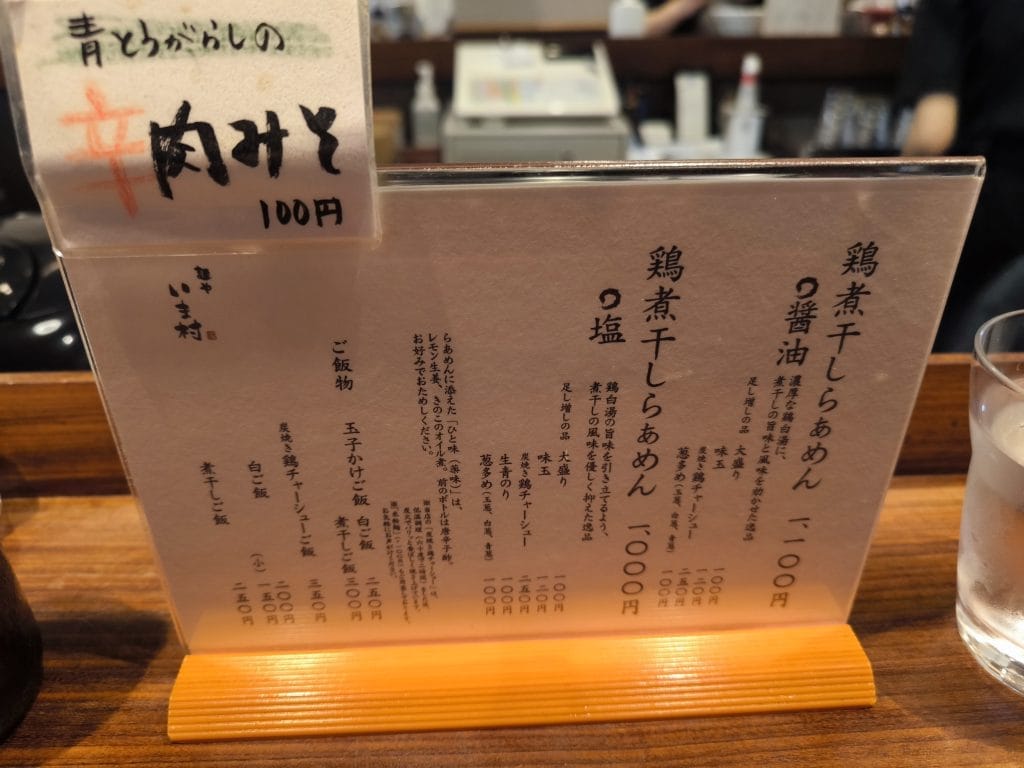 青とうがらしの
辛肉みそ
100円
鶏煮干しらぁめん
醤油
一、一〇〇円
濃厚な鶏白湯に、
煮干しの旨味と風味を効かせた逸品
足し増しの品
大盛り 一〇〇円
味玉 一二〇円
炭焼き鶏チャーシュー 二五〇円
葱多め（玉葱、白葱、青葱） 一〇〇円
鶏煮干しらぁめん
塩
一、〇〇〇円
鶏白湯の旨味を引き立てるよう、
煮干しの風味を優しく抑えた逸品
足し増しの品
大盛り 一〇〇円
味玉 一二〇円
炭焼き鶏チャーシュー 二五〇円
生青のり 一〇〇円
葱多め（玉葱、白葱、青葱） 一〇〇円
らあめんに添えた「ひと味（薬味）」は、
レモン生姜、きのこのオイル煮。前のボトルは唐辛子酢。
お好みでおためしください。
ご飯物
玉子かけご飯
白ご飯 二五〇円
煮干しご飯 三〇〇円
炭焼き鶏チャーシューご飯 三五〇円
白ご飯 二〇〇円
（小） 一五〇円
煮干しご飯 二五〇円
麺や
いま村